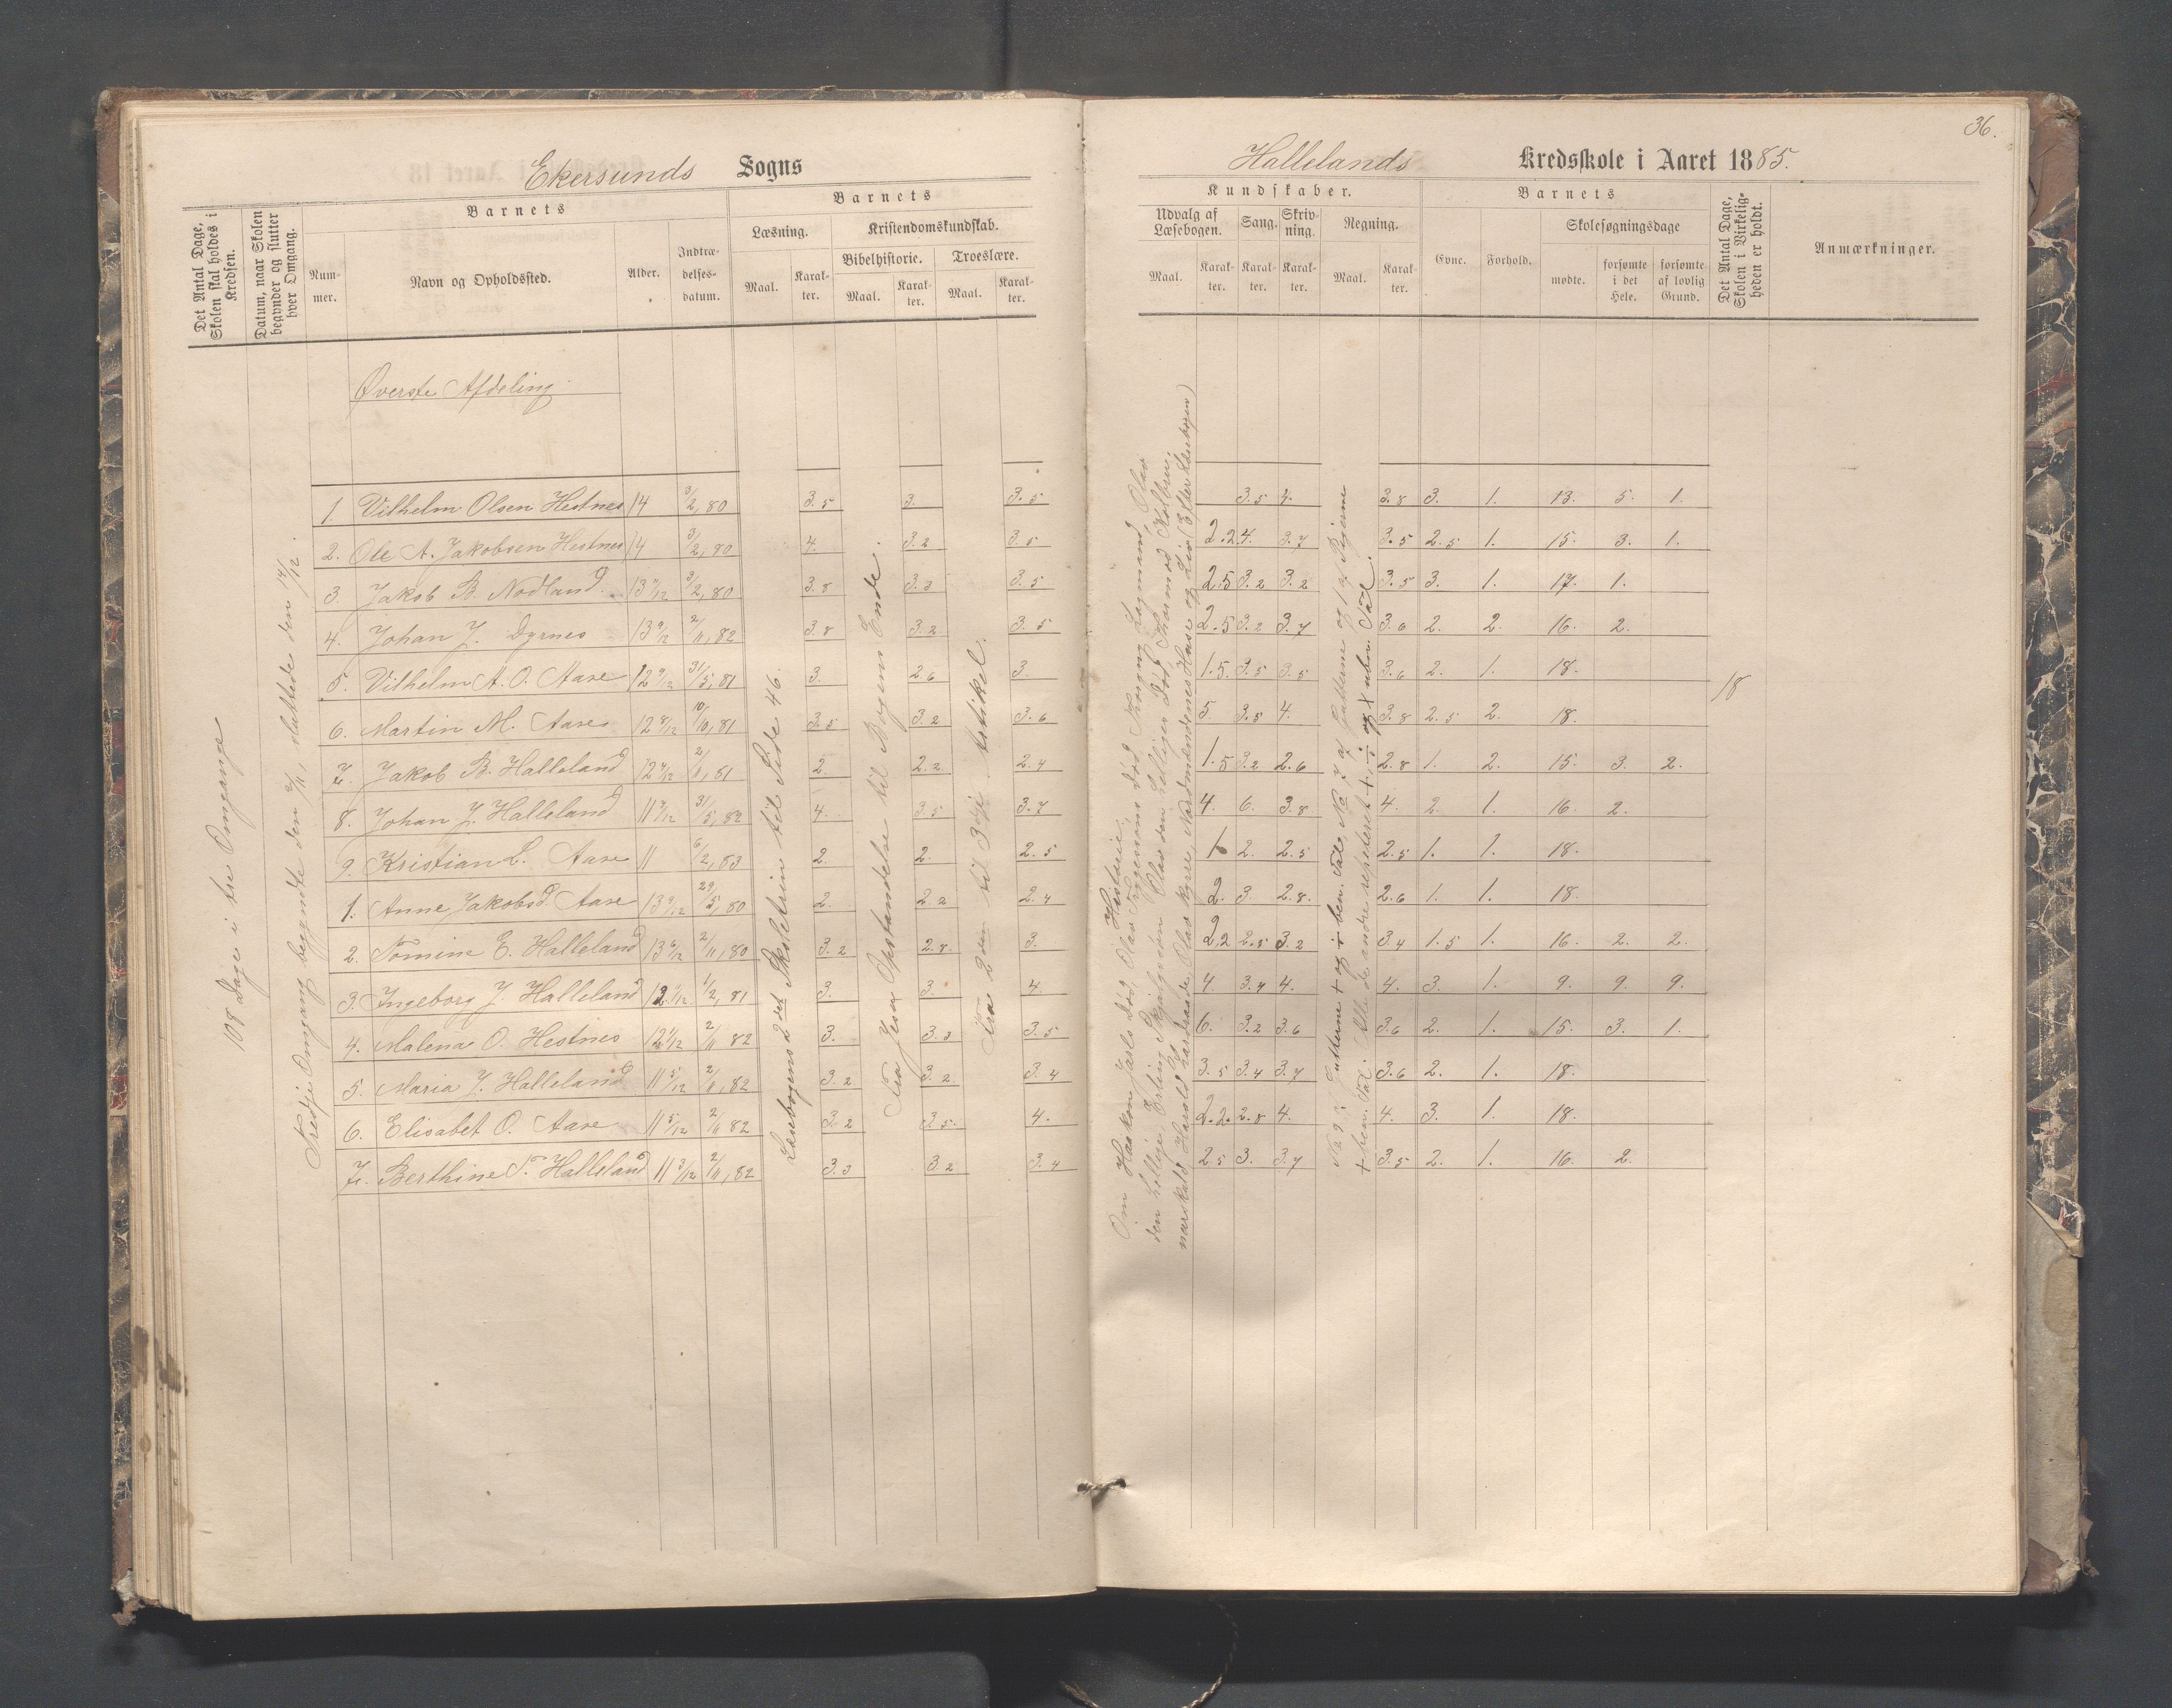 36.
Ekersunds Sogns
Hallelands Kredsskole i Aaret 1885.
Det Antal Dage, Skolen skal holdes i Kredsen.
Datum, naar Skolen begynder og slutter hver Omgang.
Barnets
Nummer.
Navn og Opholdssted.
Alder.
Indtrædelsesdatum.
Barnets
Læsning.
Maal.
Karakter.
Kristendomskundskab.
Bibelhistorie.
Maal.
Karakter.
Troeslære.
Maal.
Karakter.
Kundskaber.
Udvalg af Læsebogen.
Maal.
Karakter.
Sang.
Karakter.
Skrivning.
Karakter.
Regning.
Maal.
Karakter.
Barnets
Evne.
Forhold.
Skolesøgningsdage
mødte.
forsømte i det Hele.
forsømte af lovlig Grund.
Det Antal Dage, Skolen i Virkeligheden er holdt.
Anmærkninger.
108 Dage i tre Omgange
Tredje Omgang begyndte den 2/11, sluttede den 14/12.
Øverste Afdeling
Læsebogens 2det Skoletrin til Side 46.
Fra Jesu Opstandelse til Bogens Ende.
Fra 2den til 3dje Artikel.
Om Haakon Jarls Død, Olav Trygvesøns Død, Olav
den hellige, Erling Skjalgssøn, Olav den helliges Død,
Harald Haardraade, Olav Kyrre, Nordmændenes Huse og Liv (Efter Læsebogen)
Historie.
1. Vilhelm Olsen Hestnes 14 3/2, 80 3.5 3. 3.5 3.5 4. 3.8 3. 1. 13. 5. 1.
2. Ole A. Jakobsen Hestnes 14 3/2, 80 4. 3.2 3.5 2.2 4. 3.7 3.5 2.5 1. 15. 3. 1.
3. Jakob B. Nodland 13 7/12 3/2, 80 3.8 3.3 3.5 2.5 3.2 3.2 3.5 3. 1. 17. 1.
4. Johan J. Dyrnes 13 9/12 2/11, 82 3.8 3.2 3.5 2.5 3.2 3.7 3.6 2. 2. 16. 2.
5. Vilhelm A. O. Aase 12 9/12 31/5, 81 3. 2.6 3. 1.5 3.5 3.5 3.6 2. 1. 18.
6. Martin M. Aase 12 8/12 10/10, 81 3.5 3.2 3.6 5. 3.5 4. 3.8 2.5 2. 18.
7. Jakob B. Halleland 12 4/12 2/11, 81 2. 2.2 2.4 1.5 3.2 2.6 2.8 1. 2. 15. 3. 2.
8. Johan J. Halleland 11 9/12 31/5, 82 4. 3.5 3.7 4. 6. 3.8 4. 2. 1. 16. 2.
9. Kristian E. Aase 11 6/2, 83 2. 2. 2.5 1 2. 2.5 2.5 1. 1. 18.
1. Anne Jakobsd. Aase 13 9/12 29/5, 80 2. 2.2 2.4 2. 3. 2.8. 2.6 1. 1. 18.
2. Tomine E. Halleland 13 6/12 2/11, 80 3.2 2.8. 3. 2.2 2.5 3.2 3.4 1.5 1. 16. 2. 2.
3. Ingeborg J. Halleland 12 9/12 1/2, 81 3. 3. 4. 4. 3.4 4. 4. 3. 1. 9. 9. 9.
4. Malena O. Hestnes 12 1/12 2/11 82 3. 3.3 3.5 6. 3.2 3.6 3.6 2. 1. 15. 3. 1.
5. Maria J. Halleland 11 5/12 2/11, 82 3.2 3.2 3.4 3.5 3.4 3.7 3.6 2. 1. 18.
6. Elisabet O. Aase 11 5/12 2/11 82 3.2 3.5. 4. 2.2. 2.8 4. 4. 3. 1. 18.
7. Berthine T. Halleland 11 3/12 2/11, 82 3.3 3.2 3.4 2.5 3. 3.7 3.5 2. 1. 16. 2.
18